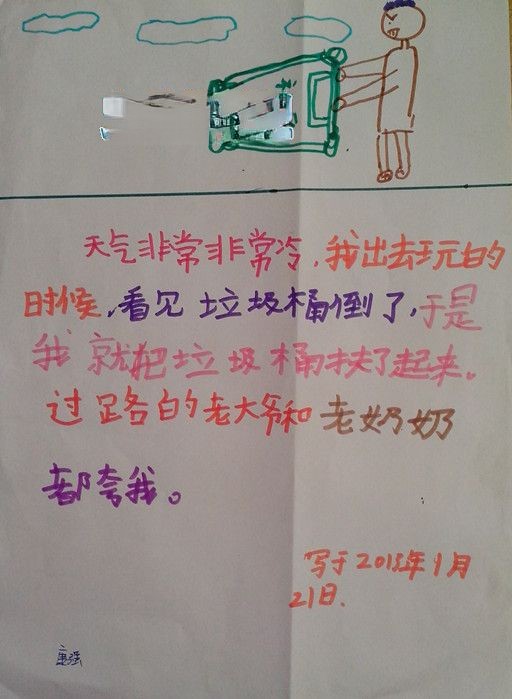 天气非常非常冷，我出去玩的
时候，看见垃圾桶倒了，于是
我就把垃圾桶扶了起来。
过路的老大爷和老奶奶
都夸我。
写于2015年1月
21日.